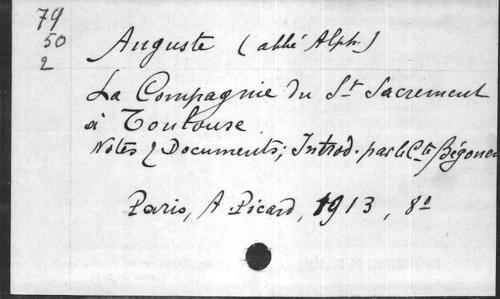 79
50
2
Auguste (abbé Alph.)
La Compagnie du St Sacrement
à Toulouse.
Notes & Documents; Introd. par le Cte Bégouen
Paris, A Picard, 1913, 8º